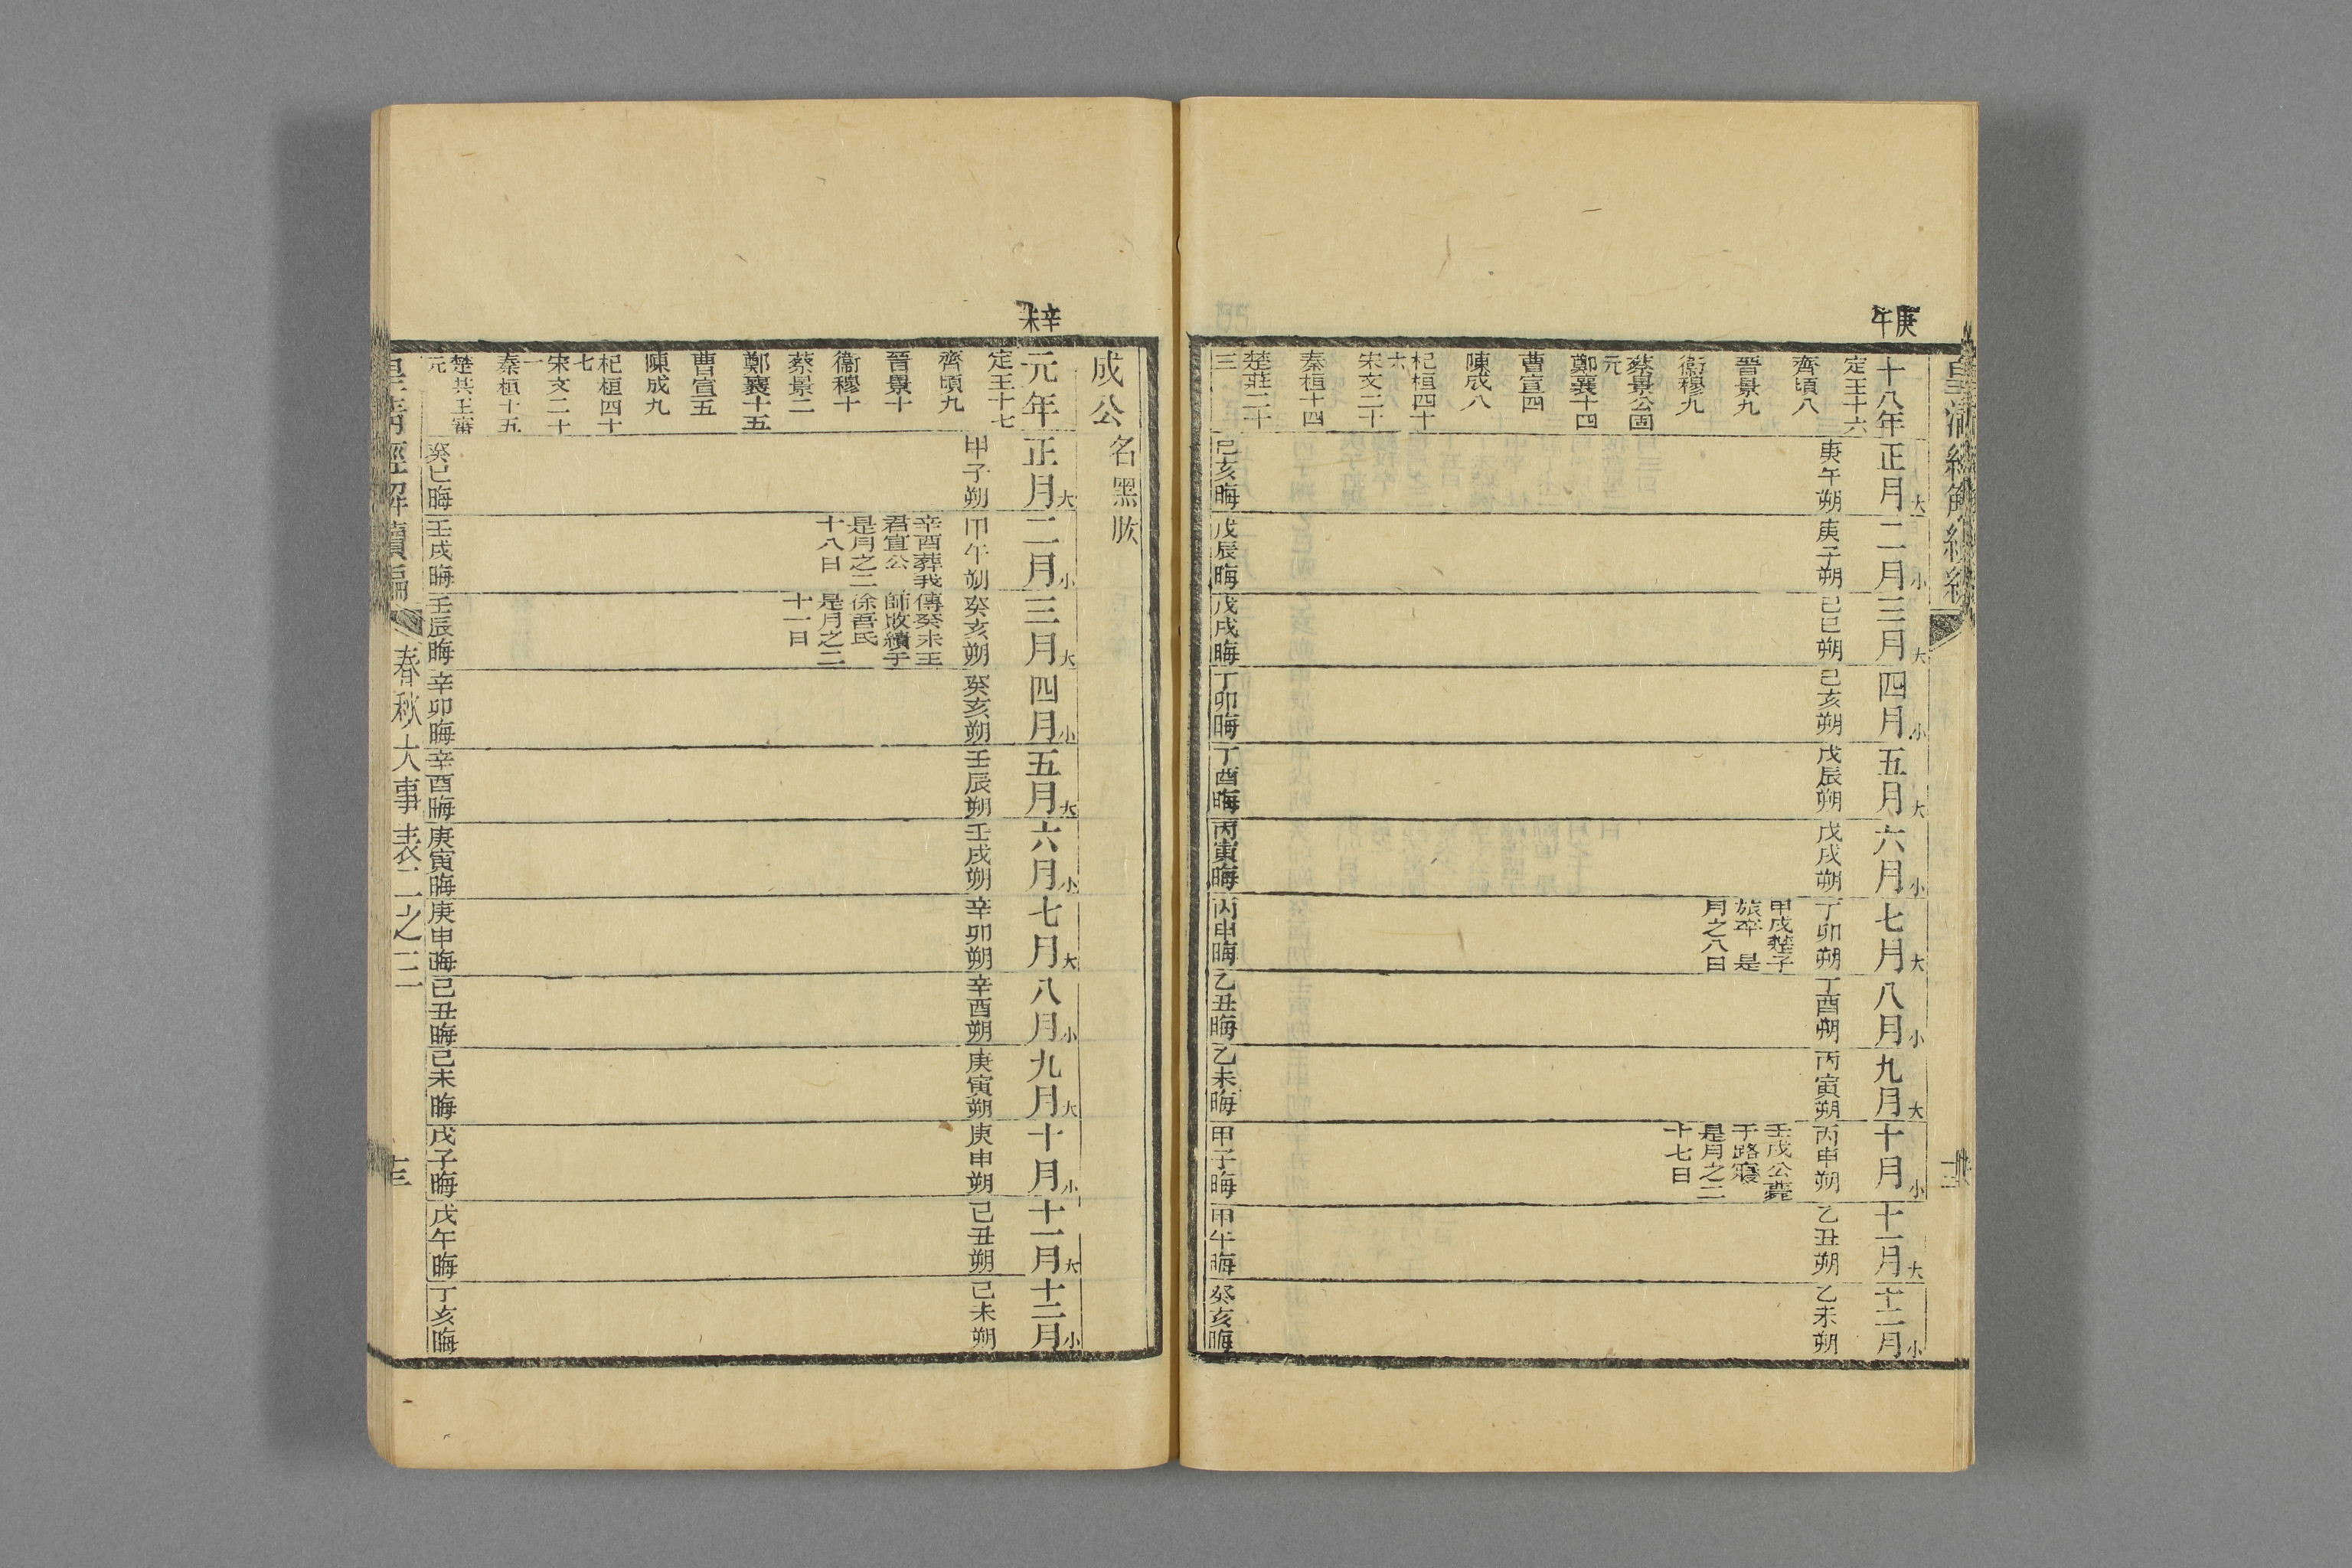 庚午
十八年
定王十六
齊頃八
晉景九
衞穆九
蔡景公固元
鄭襄十四
曹宣四
陳成八
杞桓四十六
宋文二十
秦桓十四
楚莊二十三
正月大
庚午朔
己亥晦
二月小
庚子朔
戊辰晦
三月大
己巳朔
戊戌晦
四月小
己亥朔
丁卯晦
五月大
戊辰朔
丁酉晦
六月小
戊戌朔
丙寅晦
七月大
丁卯朔
甲戌楚子
旅卒 是
月之八日
丙申晦
八月小
丁酉朔
乙丑晦
九月大
丙寅朔
乙未晦
十月小
丙申朔
壬戌公薨
于路寢
是月之二
十七日
甲子晦
十一月大
乙丑朔
甲午晦
十二月小
乙未朔
癸亥晦
成公 名黑肱
辛未
元年
定王十七
齊頃九
晉景十
衞穆十
蔡景二
鄭襄十五
曹宣五
陳成九
杞桓四十七
宋文二十一
秦桓十五
楚共王審元
正月大
甲子朔
癸巳晦
二月小
甲午朔
辛酉葬我
君宣公
是月之二
十八日
壬戌晦
三月大
癸亥朔
傳癸未王
師敗績于
徐吾氏
是月之二
十一日
壬辰晦
四月小
癸亥朔
辛卯晦
五月大
壬辰朔
辛酉晦
六月小
壬戌朔
庚寅晦
七月大
辛卯朔
庚申晦
八月小
辛酉朔
己丑晦
九月大
庚寅朔
己未晦
十月小
庚申朔
戊子晦
十一月大
己丑朔
戊午晦
十二月小
己未朔
丁亥晦
皇清經解續編
春秋大事表二之三